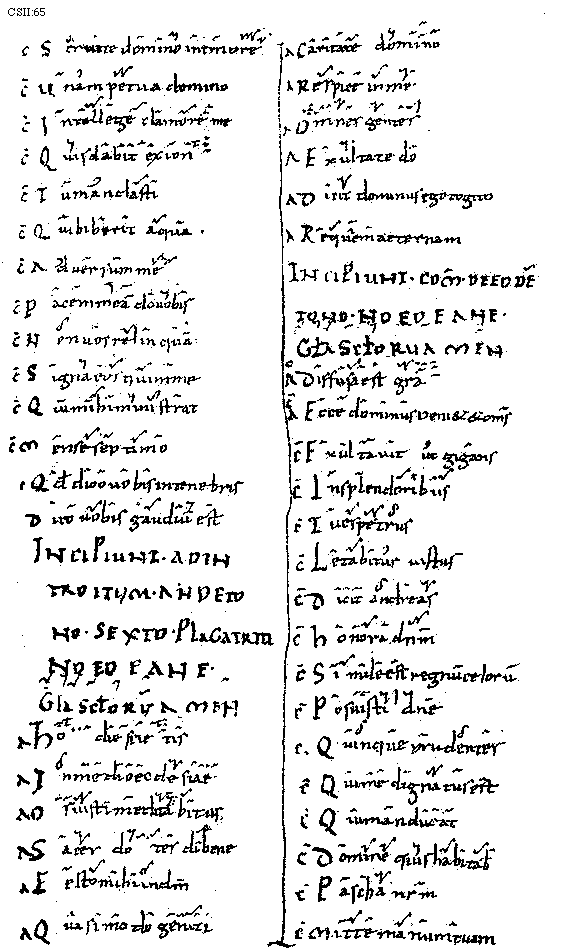 CSII:65
c S eruite domino in timore
c U nam petiua domino
c I ntellege clamore me
c Q uis dabit exion
c T u mandasti
c Q ui biberit aqua.
c A duersum me
c P acem mea do uobis
c N on uos relinqua
c S igna eos qui in me
c Q ui mihi ministrat
c M ense septimo
c Q d dico uobis in tenebris
D ico uobis gaudiu est
INCIPIUNT. AD IN
TROITUM. AN DE TO
NO. SEXTO. PLAGATRITI
NO EO EANE.
Gla SclORUM AMEN
A H o die scie tis
A I n medio ecclesiae
A O s iusti meditabitur
A S acer do tes di bene
A E sto mihi in dm
A Q uasi modo geniti
A Cantate domino
A Respice in me
A O mnes gentes
A E xultate do
A D icit dominus ego cogito
A R equiem aeternam
INCIPIUNT. COM. DE EODE
TONO. NO EO EANE.
Gla SclORUM AMEN
A Diffusa est gra
A E cce dominus veniet & omnes
c E xultauit ut gigans
c I n splendoribus
c T u es petrus
c L etabitur iustus
c D icit andreas
c h onora dnm
c S imile est regnu celoru
c P osuisti dne
c. Q uinque prudentes
c Q ui me dignatus est
c Q ui manducat
c D omine quis habitab
c P ascha nrm
c Mitte manum tuam